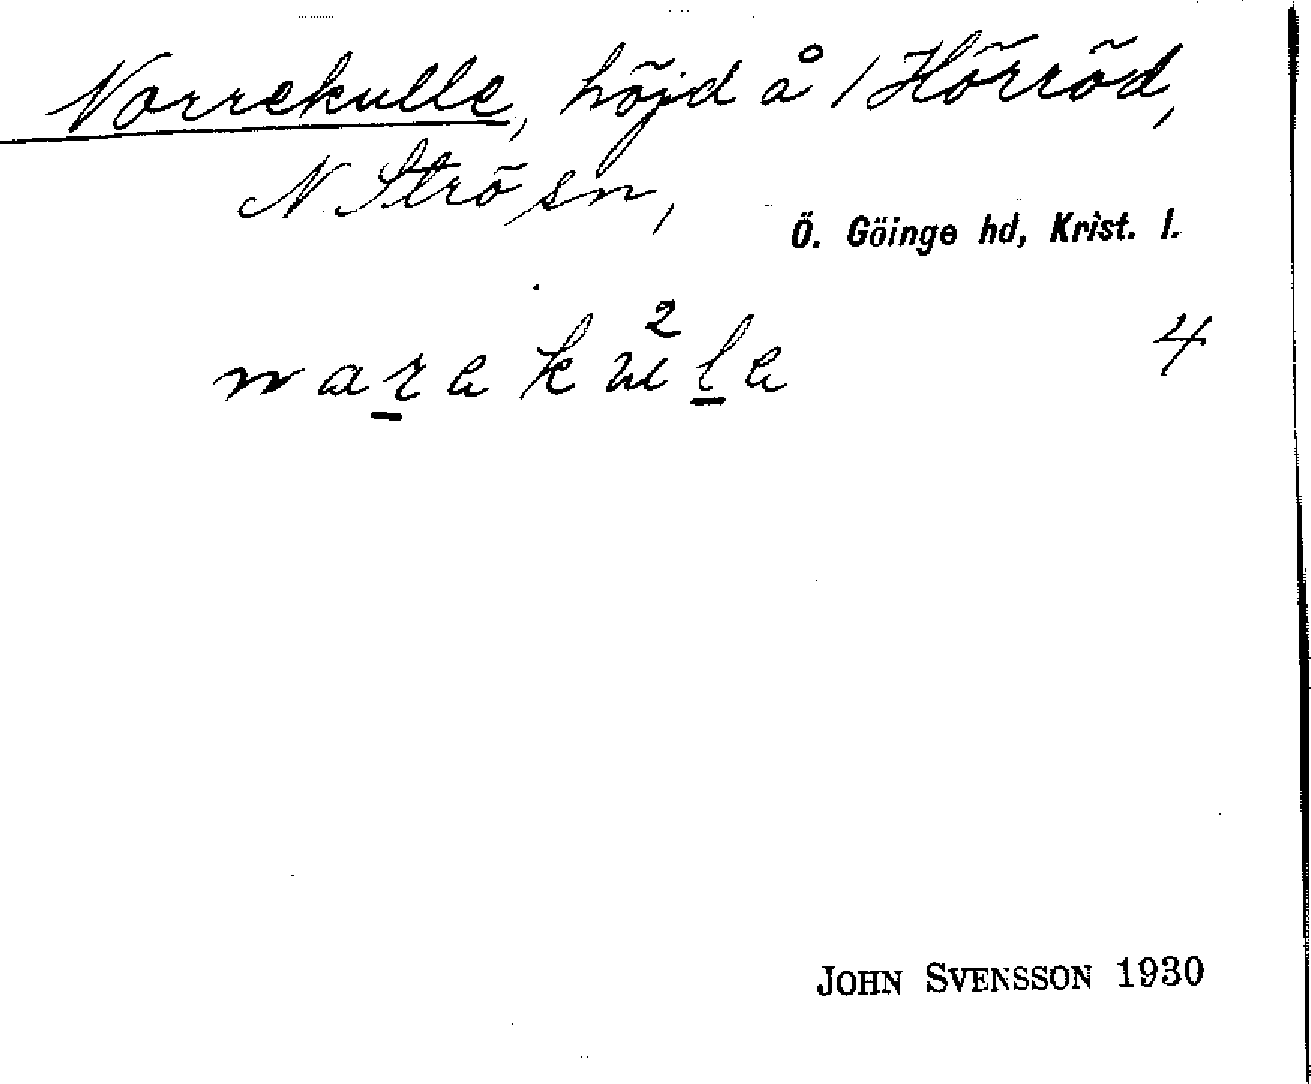 Norrekulle, höjd å /Hörröd,
N. Strö sn,
Ö. Göinge hd, Krist. l.
narakula 2
4
JOHN SVENSSON 1930